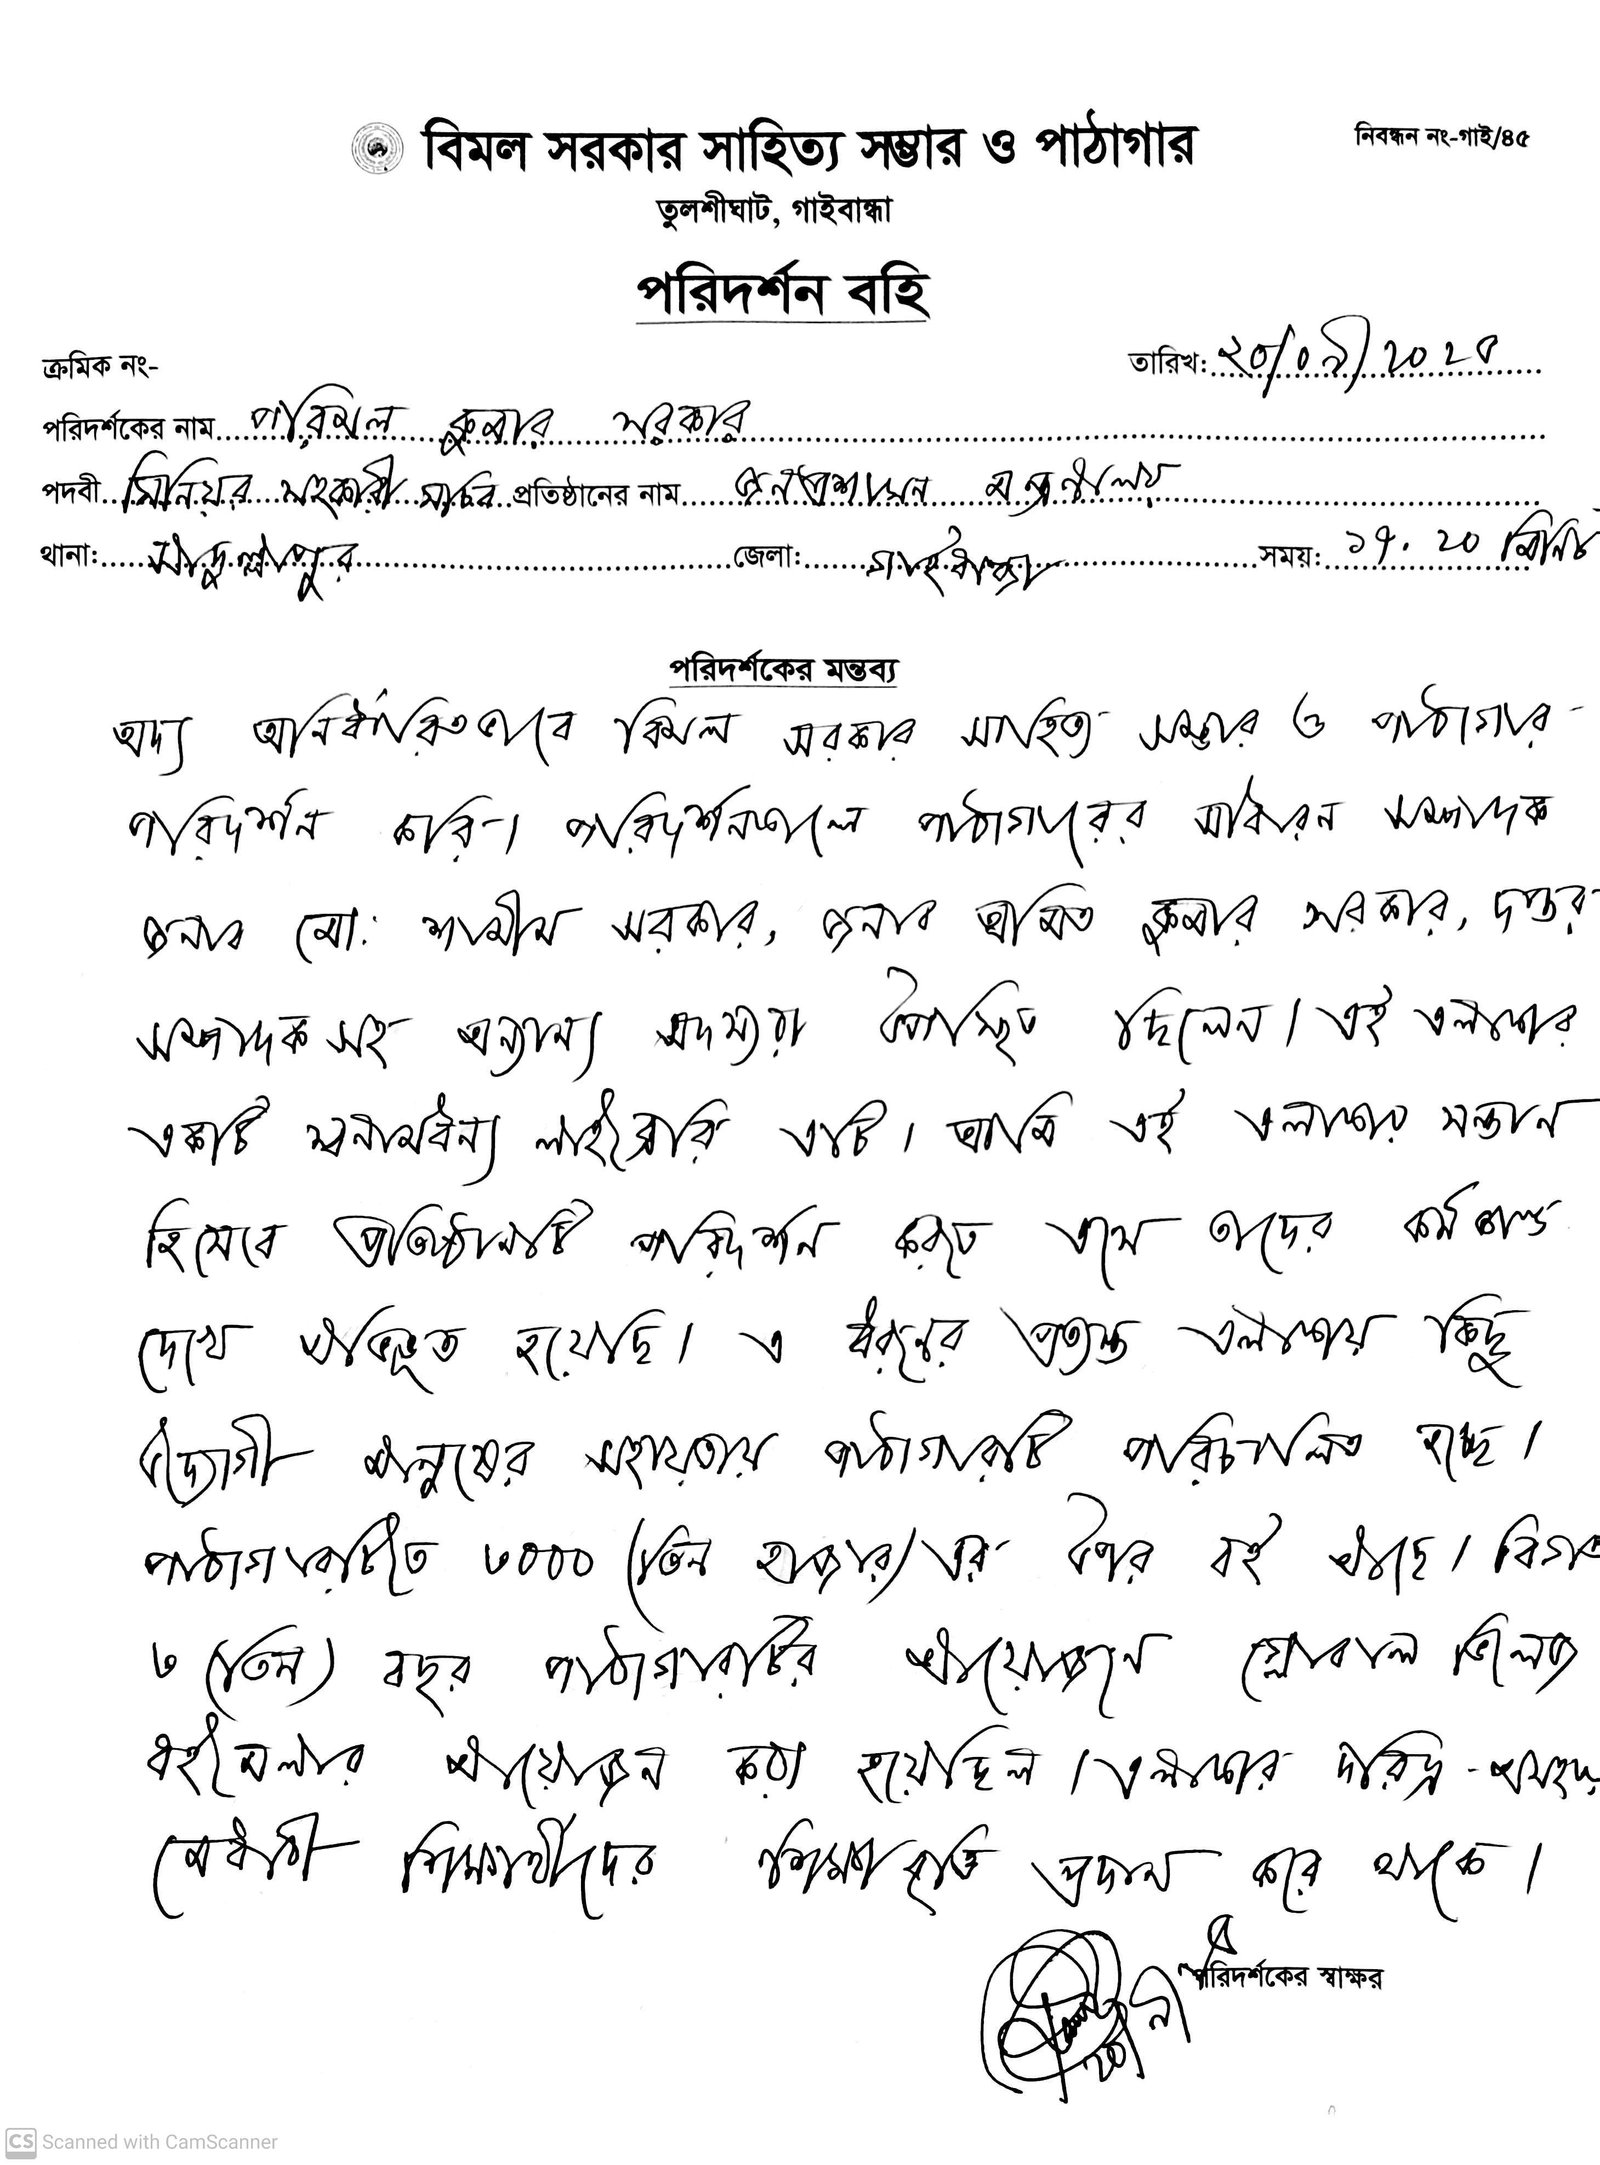 বিমল সরকার সাহিত্য সম্ভার ও পাঠাগার
নিবন্ধন নং-গাই/৪৫
তুলশীঘাট, গাইবান্ধা
পরিদর্শন বহি
ক্রমিক নং-
তারিখ: ২০/০৯/২০২৫
পরিদর্শকের নাম পরিমল কুমার সরকার
পদবী সিনিয়র সহকারী সচিব প্রতিষ্ঠানের নাম জনপ্রশাসন মন্ত্রণালয়
থানা: সাদুল্লাপুর জেলা: গাইবান্ধা সময়: ১৭.২০ মিনিট
পরিদর্শকের মন্তব্য
অদ্য অনির্ধারিতভাবে বিমল সরকার সাহিত্য সম্ভার ও পাঠাগার
পরিদর্শন করি। পরিদর্শনকালে পাঠাগারের সাধারন সম্পাদক
জনাব মো: শামীম সরকার, জনাব অমিত কুমার সরকার, দপ্তর
সম্পাদক সহ অন্যান্য সদস্যরা উপস্থিত ছিলেন। এই এলাকার
একটি স্বনামধন্য লাইব্রেরি এটি। আমি এই এলাকার সন্তান
হিসেবে প্রতিষ্ঠানটি পরিদর্শন করতে এসে তাদের কর্মকান্ড
দেখে অভিভূত হয়েছি। এ ধরনের প্রত্যন্ত এলাকায় কিছু
উদ্যোগী মানুষের সহায়তায় পাঠাগারটি পরিচালিত হচ্ছে।
পাঠাগারটিতে ৩০০০ (তিন হাজার) এর উপর বই আছে। বিগত
৩ (তিন) বছর পাঠাগারটির আয়োজনে গ্লোবাল ভিলেজ
বইমেলার আয়োজন করা হয়েছিল। এলাকার দরিদ্র-অসহায়
মেধাবী শিক্ষার্থীদের শিক্ষাবৃত্তি প্রদান করে থাকে।
পরিদর্শকের স্বাক্ষর
CS Scanned with CamScanner